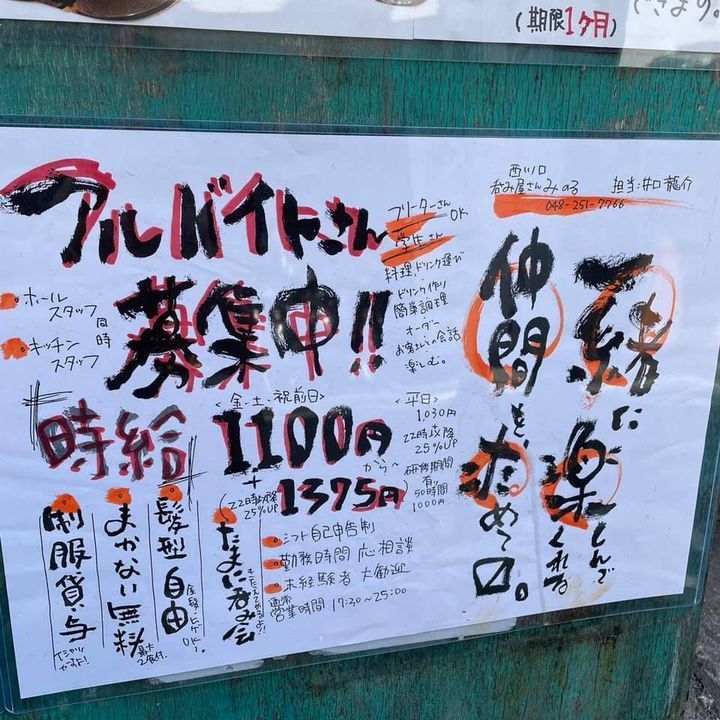 できます。
(期限1ヶ月)
西川口
呑み屋さんみのる
担当:井口龍介
048-251-7766
アルバイトさん
募集中!!
フリーターさん
OK
学生さん
料理・ドリンク運び
・ドリンク作り
簡単調理
・オーダー
お客さんとの会話
楽しむ。
ホール
スタッフ
キッチン
スタッフ
同時
一緒に楽しんでくれる
仲間を、求めて〼。
時給
<金、土、祝前日>
1100円
から〜
+
(22時以降
25%UP
1375円
<平日>
1030円
22時以降
25%UP
研修期間
有り
50時間
1000円
シフト自己申告制
勤務時間 応相談
未経験者 大歓迎
通常
営業時間 17:30~25:00
たまに呑み会
髪型自由
金髪・ヒゲOK〜。
まかない無料
制服貸与